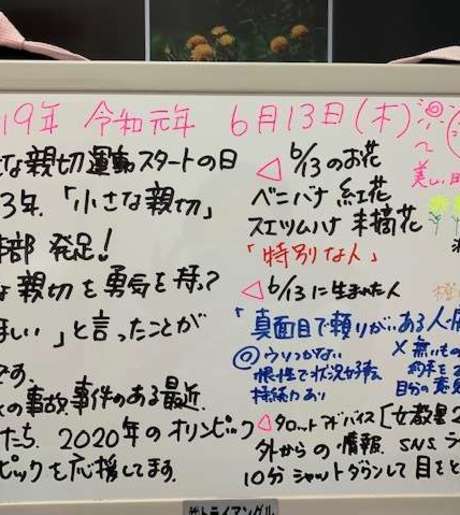 19年 令和元年 6月13日(木)
美しい
な親切運動スタートの日
3年.「小さな親切」
本部 発足!
な親切を勇気を持って
ほしい」と言ったことが
です。
の事故,事件のある最近.
たち. 2020年のオリンピック
ピックを応援してます.
◁ 6/13 のお花
ベニバナ 紅花
スエツムハナ 末摘花
「特別な人」
◁ 6/13 に生まれた人
「真面目で頼りがいある人
◎ウソつかない
根性で状況好転
持続力あり
× 無いもの
約束を
自分の意見
◁タロットアドバイス[女教皇2
外からの情報. SNS. ラ
10分 シャットダウンして 目をと
㈱トライアングル